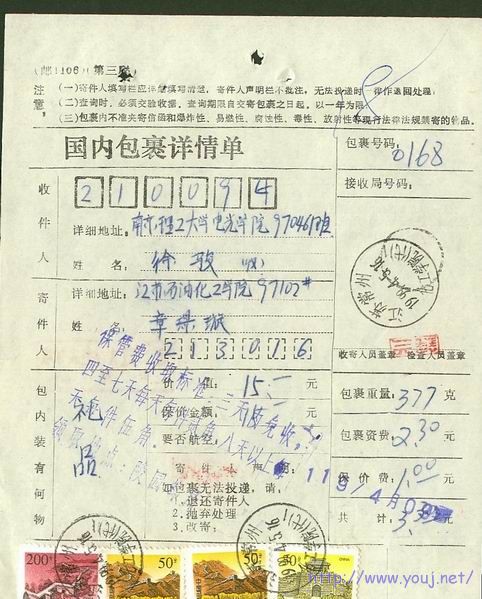 (邮1106)(第三联)
注意:
(一)寄件人填写栏应详细填写清楚,寄件人声明栏不批注,无法投递时一律作退回处理;
(二)查询时,必须交验收据。查询期限自交寄包裹之日起,以一年为限;
(三)包裹内不准夹寄信函和爆炸性、易燃性、腐蚀性、毒性、放射性等现行法律法规禁寄的物品。
国内包裹详情单
包裹号码:
0168
接收局号码:
收件人
210094
详细地址:南京理工大学电光学院970461班
姓名:徐 收
寄件人
详细地址:江苏石油化工学院97102#
姓名:章
213016
江苏常州
收寄人员盖章 检查人员盖章
包内装有何物
礼品
价值: 15.— 元
保价金额: 元
要否航空:
保管费收取标准:三天内免收
四至七天每天每件贰角
八天以上每天每件伍角
领取地点:
包裹重量: 377 克
包裹资费: 2.30 元
保价费: 1.00 元
共计: 元
寄件人声明
如包裹无法投递,请:
1.退还寄件人
2.抛弃处理
3.改寄:
200
50分
50分
50
CHINA
http://www.youj.net/